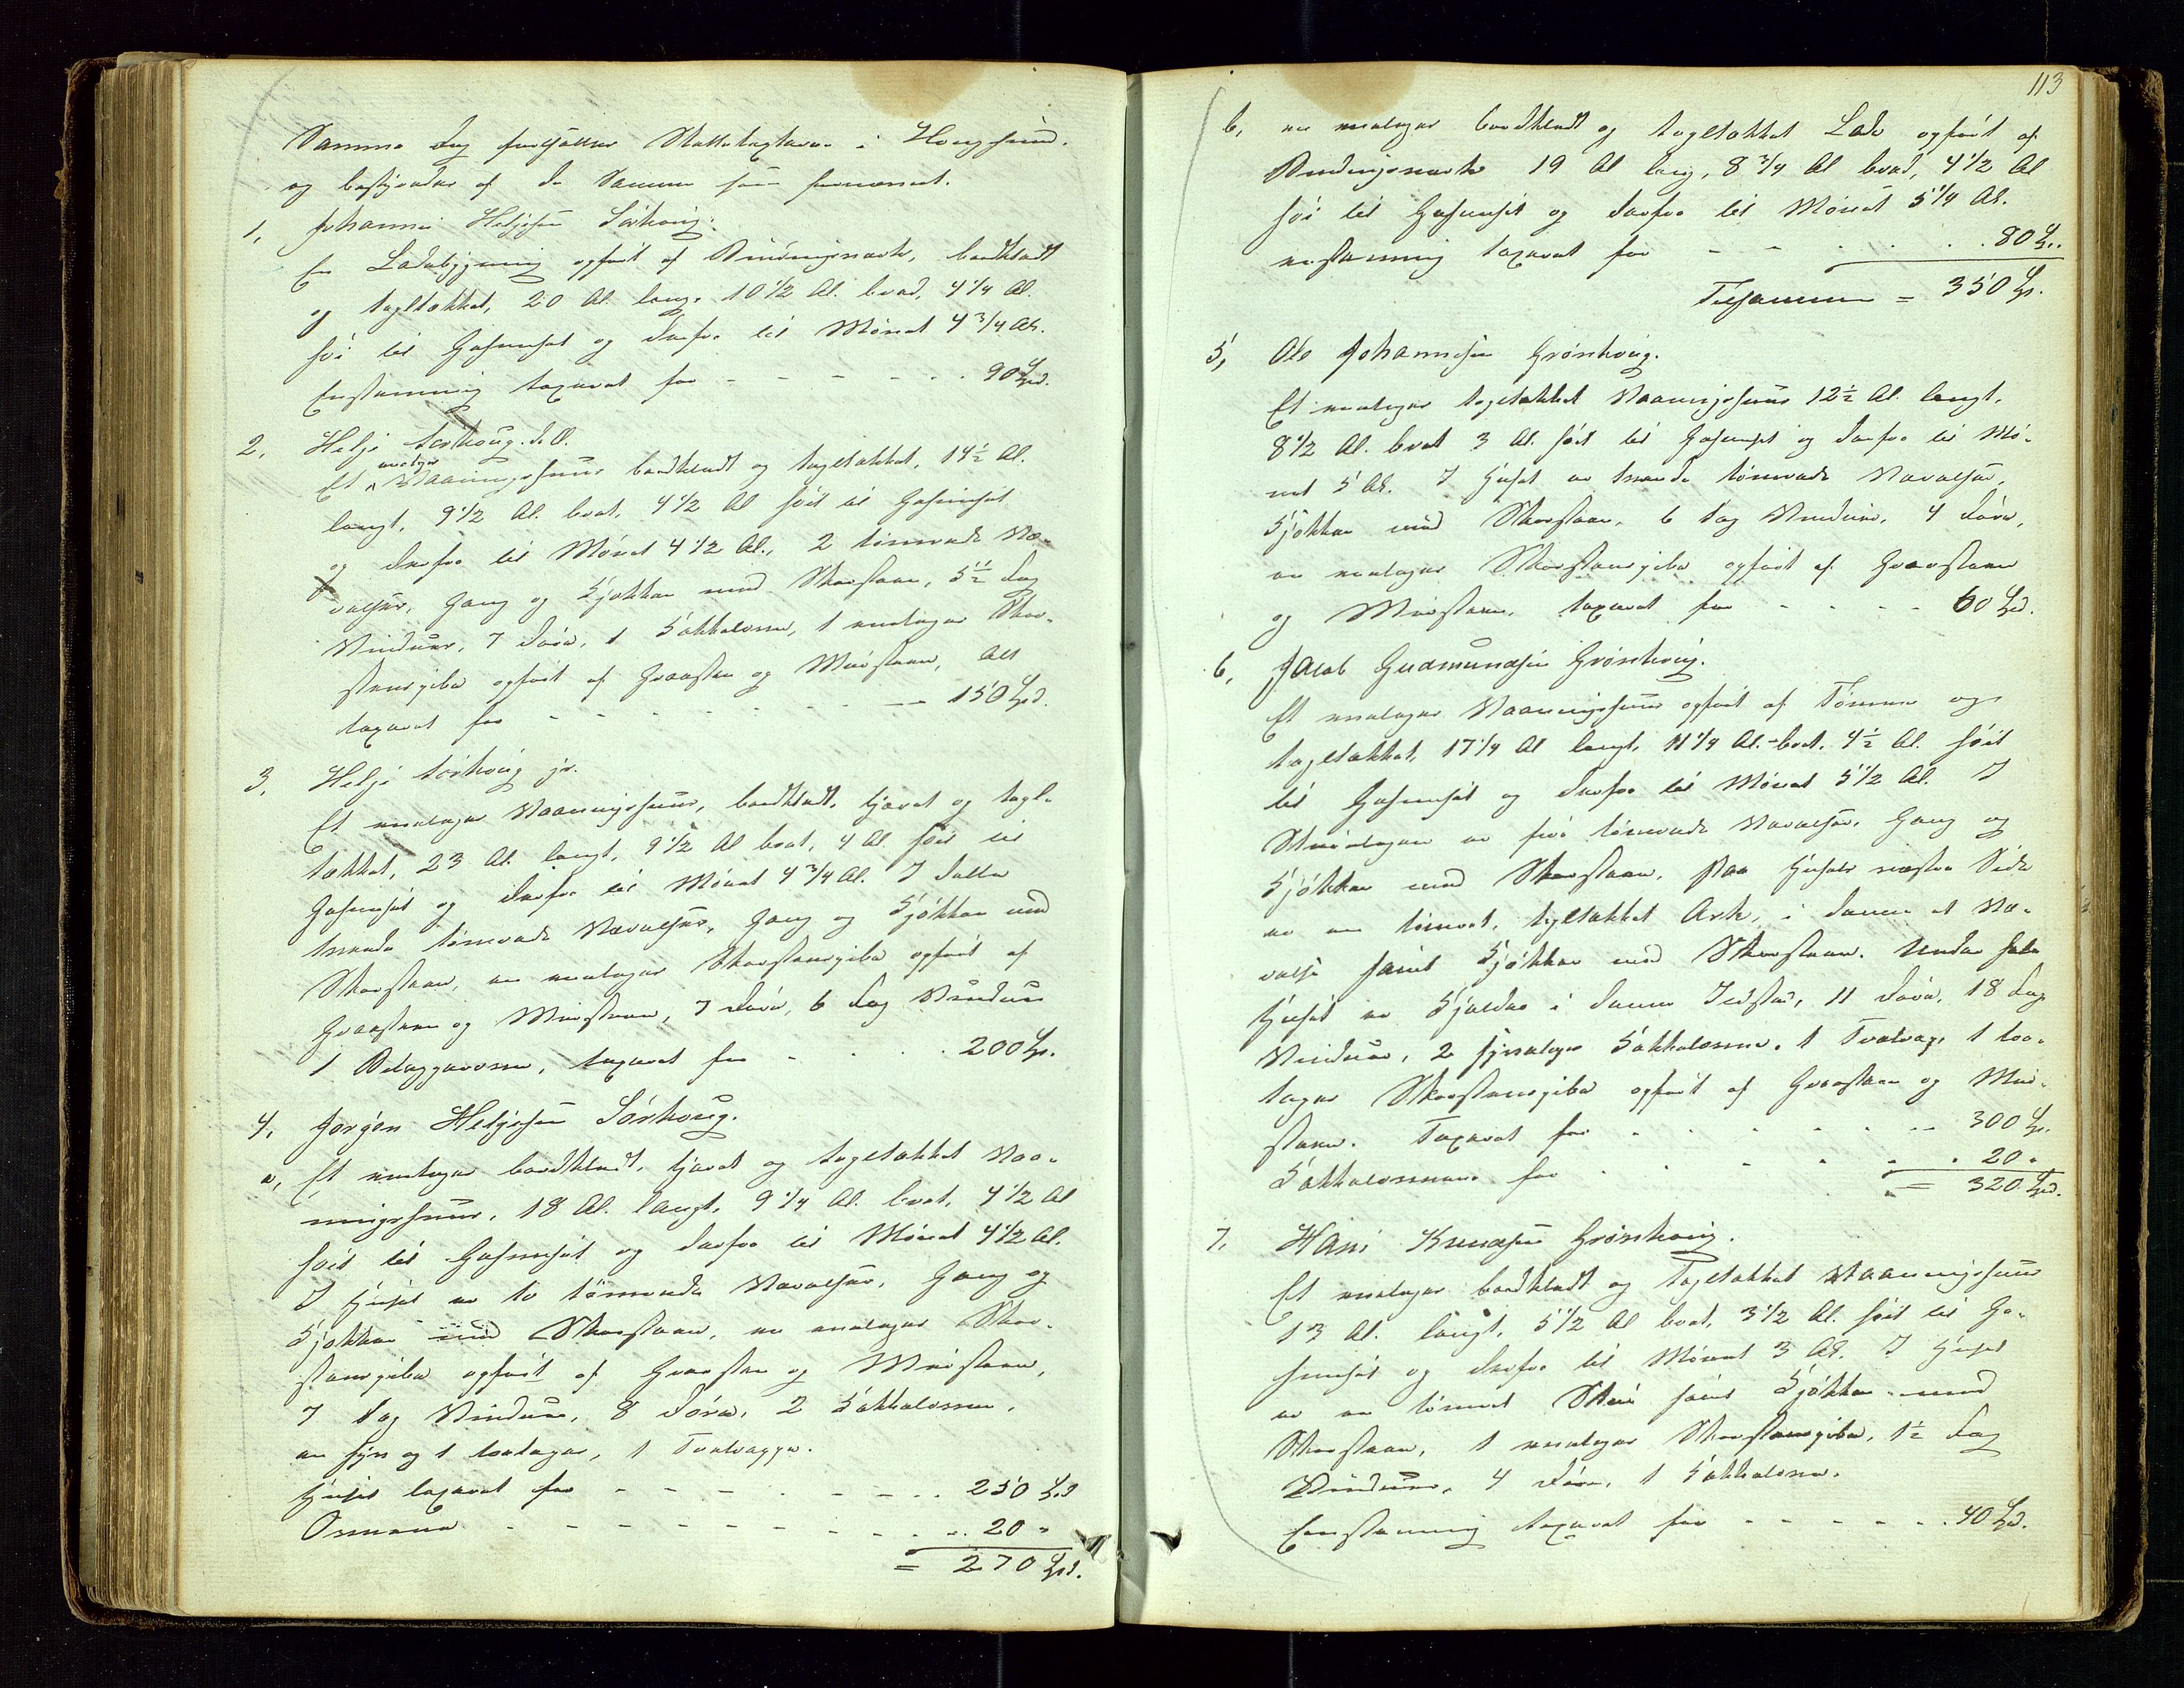 Samme Dag fortsattes Skattetaxterne i Hougsund.
og bestyredes af de Samme som fornævnt.
1, Johannes Helgesen Sørhoug:
En Ladebygning opført af Bindingsverk, bordklædt
og tagltækket, 20 Al. lang, 10 1/2 Al. bred, 4 1/4 Al.
høi til Gesimset og derfra til Mønet 4 3/4 Al.
Enstemmig taxeret for - - - - - 90 Spd.
2, Helge Sørhoug s. E.
Et enetages Vaaningshuus bordklædt og tagltækket, 14 1/2 Al.
langt, 9 1/2 Al. bredt, 4 1/2 Al høit til Gesimset
og derfra til Mønet 4 1/2 Al., 2 tømrede Væ-
relser, Gang og Kjøkken med Skorsteen, 5 1/2 Fag
Vinduer, 7 Døre, 1 Kakkelovn, 1 enetages Skor-
steenspibe opført af Graasten og Muursteen, Alt
taxeret for - - - - - - - 150 Spd.
3, Helge Sørhoug jr.
Et enetages Vaaningshuus, bordklædt, tjæret og tagl-
tækket, 23 Al. langt, 9 1/2 Al bredt, 4 Al. høit til
Gesimset og derfra til Mønet 4 3/4 Al. I dette
trende tømrede Værelser, Gang og Kjøkken med
Skorsteen, en enetages Skorsteenspibe opført af
Graasteen og Muursteen, 7 Døre, 6 Fag Vinduer
1 Bilæggerovn, taxeret for - - - - 200 Sp.
4, Jørgen Helgesen Sørhoug.
a, Et enetages bordklædt, tjæret og tagltækket Vaa-
ningshuus, 18 Al. langt, 9 1/4 Al. bredt, 4 1/2 Al
høit til Gesimset og derfra til Mønet 4 1/2 Al.
I Huset er to tømrede Værelser, Gang og
Kjøkken med Skorsteen, en enetages Skor-
steenspibe opført af Graasten og Muursteen,
7 Fag Vinduer, 8 Døre, 2 Kakkelovne,
en fiir og 1 toetages, 1 Trætrappe.
Huset taxeret for - - - - - - - 250 Spd
Ovnene - - - - - - - - - 20 "
= 270 Spd.
113
b, en enetages bordklædt og tagltækket Lade opført af
Bindingsverk 19 Al lang, 8 3/4 Al bred, 4 1/2 Al
høi til Gesimset og derfra til Mønet 5 1/4 Al.
enstemmig taxeret for - - - - - 80 Sp.
Tilsammen = 350 Sp.
5, Ole Johannesen Grønhoug.
Et enetages tagltækket Vaaningshuus 12 1/2 Al. langt,
8 1/2 Al. bredt 3 Al. høit til Gesimset og derfra til Mø-
net 5 Al. I Huset er trende tømrede Værelser,
Kjøkken med Skorsteen, 6 Fag Vinduer, 4 Døre,
en enetages Skorsteenspibe opført af Graasteen
og Muursteen, taxeret for - - - - 60 Spd.
6, Jacob Gudmundsen Grønhoug.
Et enetages Vaaningshuus opført af Tømmer og
tagltækket, 17 1/4 Al langt, 11 1/4 Al. bredt, 4 1/2 Al. høit
til Gesimset og derfra til Mønet 5 1/2 Al. I
Stueetagen er fire tømrede Værelser, Gang og
Kjøkken med Skorsteen, paa Husets vestre Side
er en tømret, tagltækket Ark, i denne et Væ-
relse samt Kjøkken med Skorsteen. Under hele
Huset er Kjælder i denne Ildsted, 11 Døre, 18 Fag
Vinduer, 2 fiiretages Kakkelovne, 1 Trætrap, 1 toe-
tages Skorsteenspibe opført af Graasteen og Muur-
steen. Taxeret for - - - - - - 300 Sp.
Kakkelovnene for - - - - - 20 "
= 320 Spd.
7, Hans Knudsen Grønhoug.
Et enetages bordklædt og Tagltækket Vaaningshuus
13 Al. langt, 5 1/2 Al bredt, 3 1/2 Al. høit til Ge-
simset og derfra til Mønet 3 Al. I Huset
er en tømret Stue samt Kjøkken med
Skorsteen, 1 enetages Skorsteenspibe, 1 1/2 Fag
Vinduer, 4 Døre, 1 Kakkelovn.
Eenstemmig taxeret for - - - - - 40 Spd.